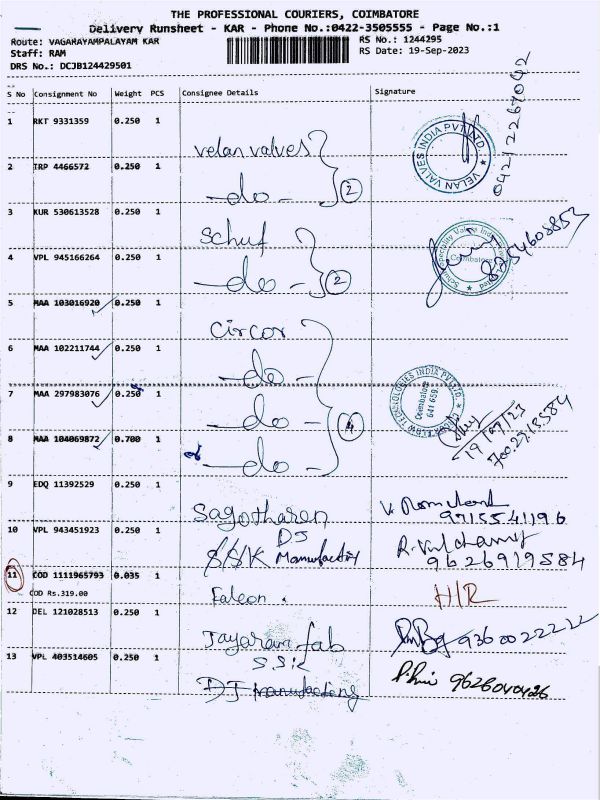 THE PROFESSIONAL COURIERS, COIMBATORE
Delivery Runsheet - KAR - Phone No.:0422-3505555 - Page No.:1
Route: VAGARAYAMPALAYAM KAR
RS No.: 1244295
Staff: RAM
RS Date: 19-Sep-2023
DRS No.: DCJB124429501
S No Consignment No Weight PCS Consignee Details Signature
1 RKT 9331359 0.250 1 velan valves
VELAN VALVES INDIA PVT LTD.
2 TRP 4466572 0.250 1 -do- 2
3 KUR 530613528 0.250 1 Schuf
Coimbatore
4 VPL 945166264 0.250 1 -do- 2
8254608853
5 MAA 103016920 0.250 1 Circor
6 MAA 102211744 0.250 1 -do-
7 MAA 297983076 0.250 1 -do- 4
TECHNOLOGIES INDIA PVT LTD.
Coimbatore
641 659.
19/09/23
8 MAA 104069872 0.700 1 -do-
9 EDQ 11392529 0.250 1 Sagotharen
9715541196
10 VPL 943451923 0.250 1 DJ
SSK Manufacting
9626919584
11 COD 1111965793 0.035 1 Falcon.
H/R
COD Rs.319.00
12 DEL 121028513 0.250 1 Jayaram fab
9360022222
SSK
13 VPL 403514605 0.250 1 DJ manufacting
9626040426